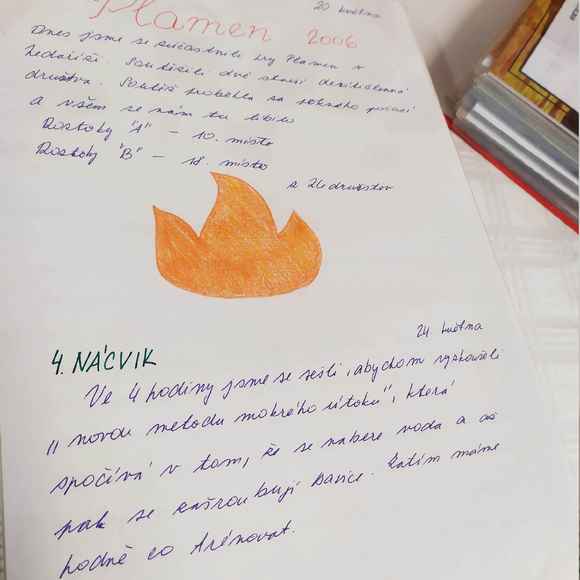 20 května
Plamen 2006
Dnes jsme se zúčastnili hry Plamen v
Soutěžili dvě
družstva. Soutěž proběhla za pěkného počasí
a všem se nám tu líbilo
Roztoky "A" - 10. místo
Roztoky "B" - 18. místo
z 26 družstev
24. května
4. NÁCVIK
Ve 4 hodiny jsme se sešli, abychom vyzkoušeli
„novou metodu mokrého útoku", která
spočívá v tom, že se nabere voda a až
pak se zašroubují savice. Zatím máme
hodně co trénovat.